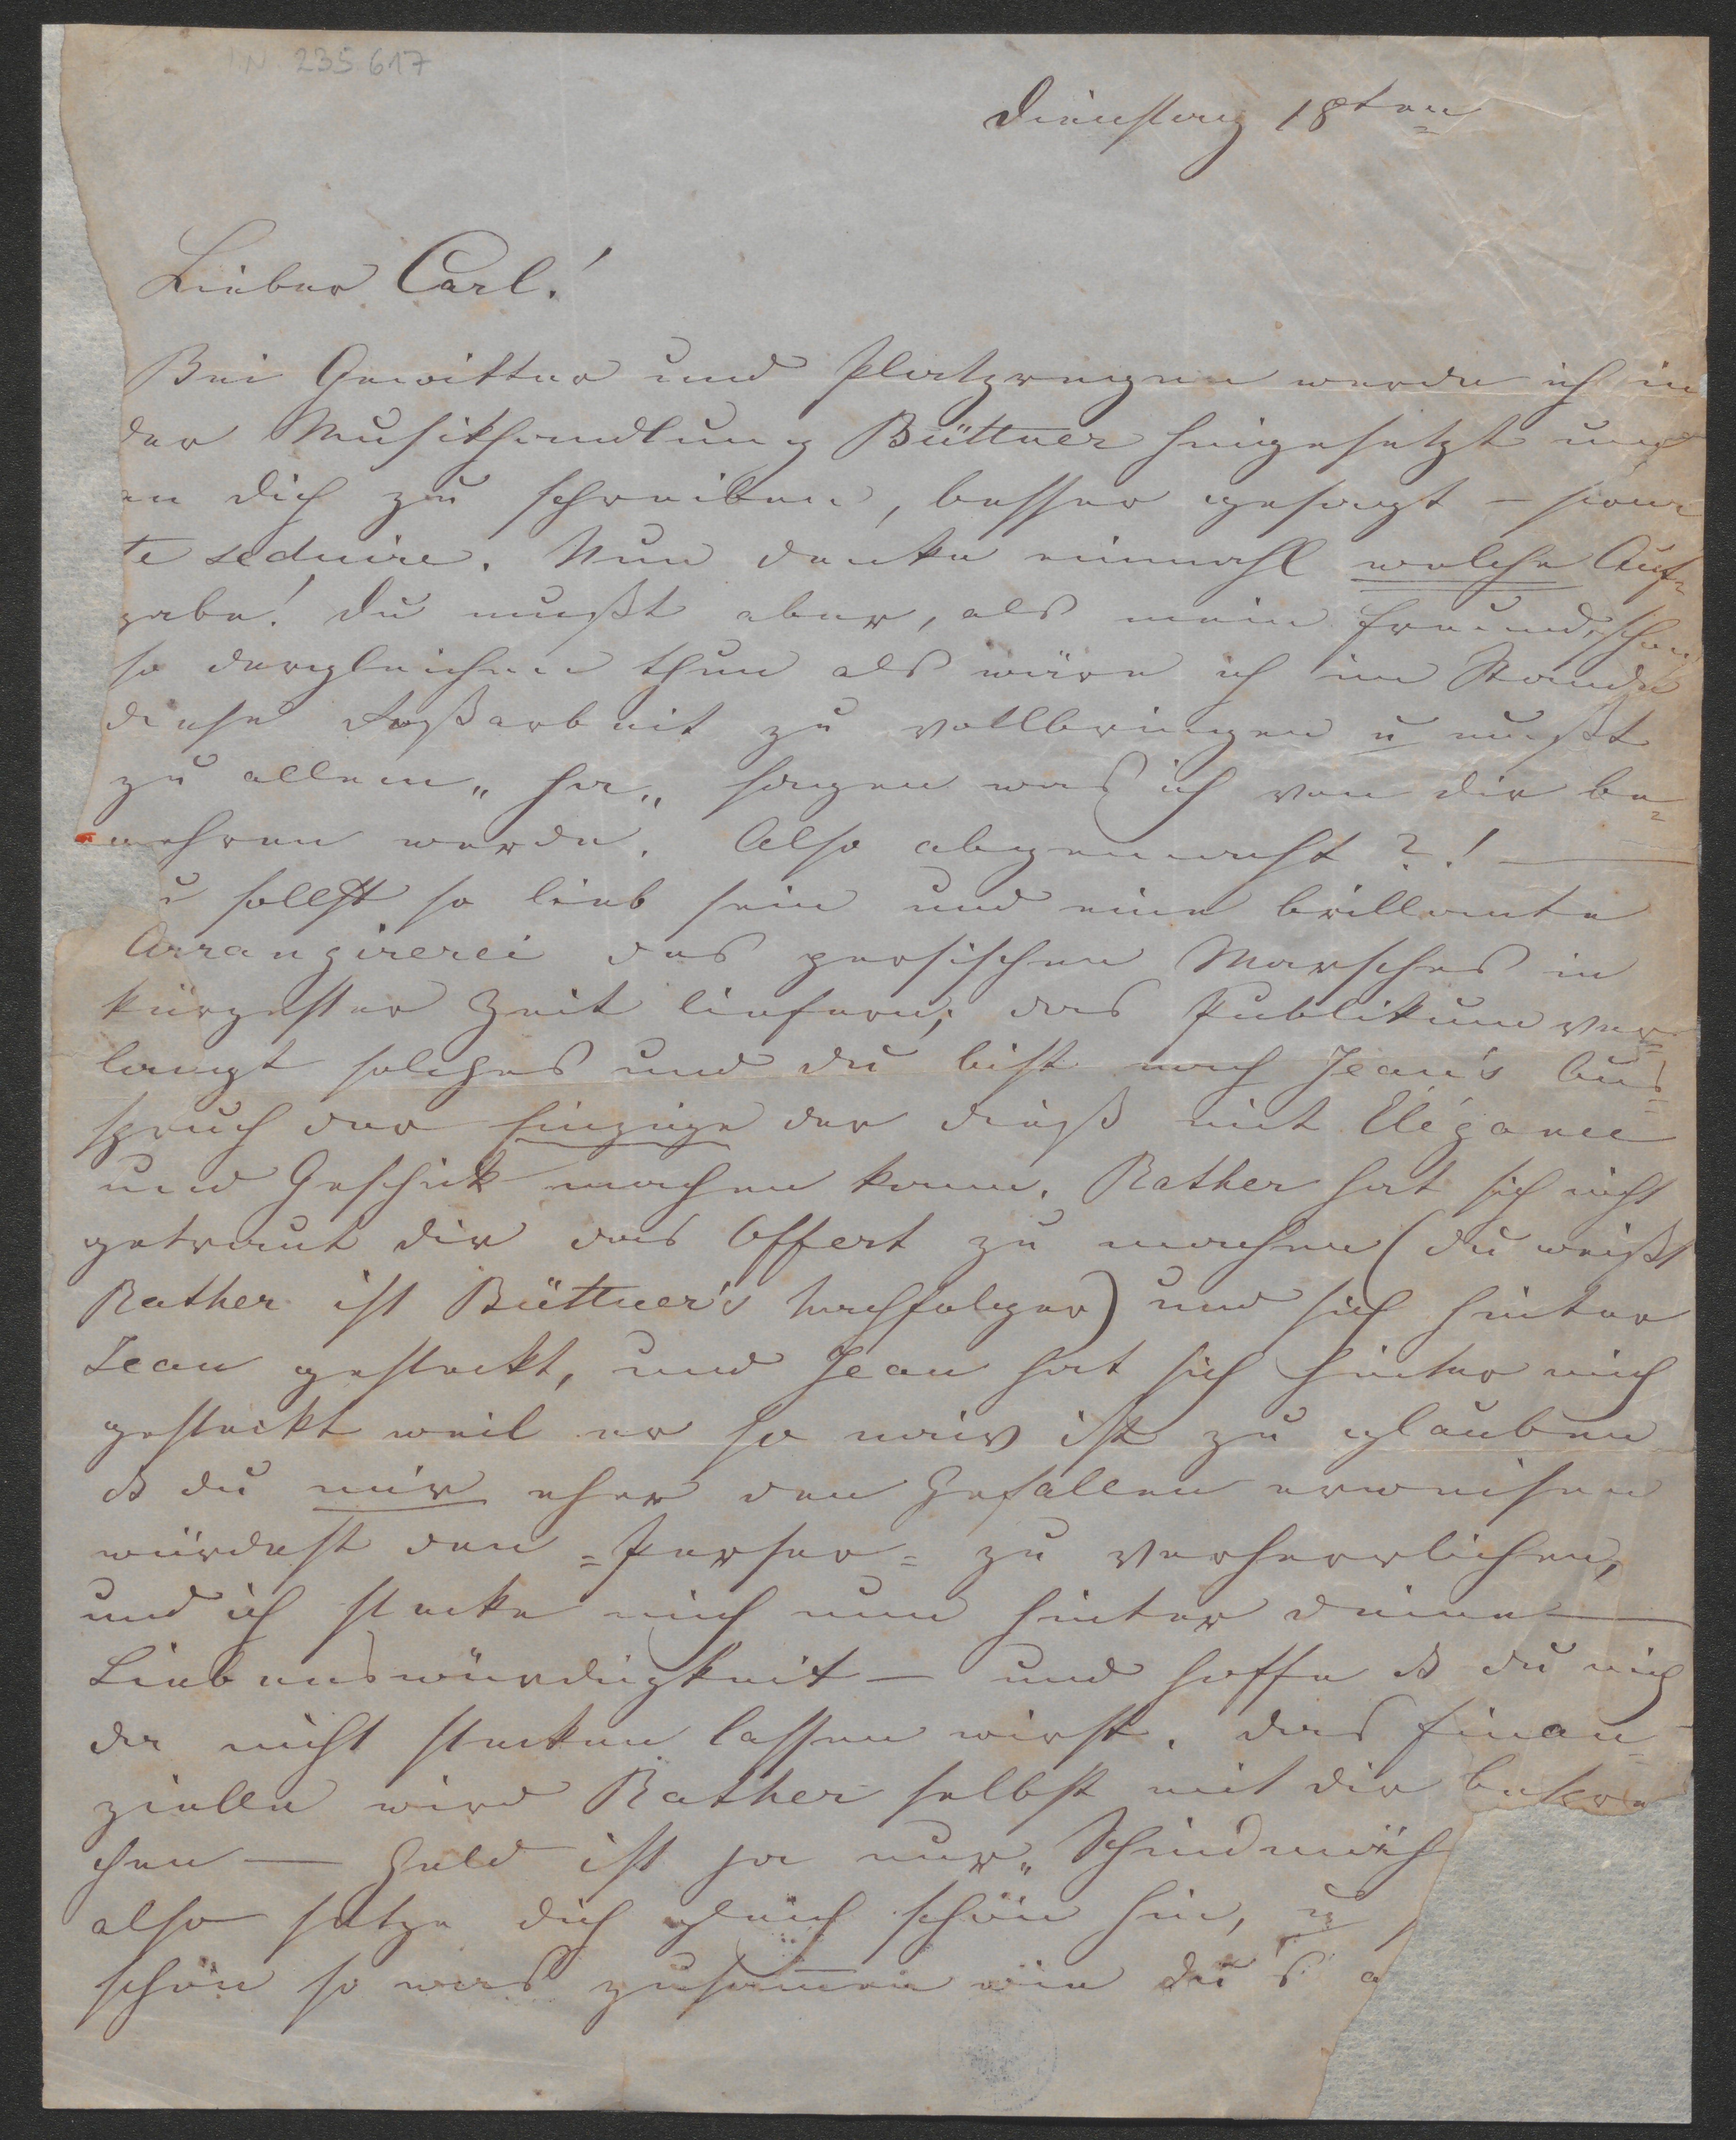 IN 235617
Dienstag 18ten
Lieber Carl!
Bei Gewitter und Platzregen werde ich in
der Musikhandlung Büttner hingesetzt um
an dich zu schreiben, besser gesagt – pour
te seduire. Nun denke einmahl welche Auf=
gabe! Du mußt aber, als mein Freund, schon
so dergleichen thun als wäre ich im Stande
diese Roßarbeit zu vollbringen u mußt
zu allem „ja„ sagen was ich von dir be=
gehren werde. Also abgemacht?! —
u sollst so lieb sein und eine brillante
Arrangirerei des persischen Marsches in
kürzester Zeit liefern; das Publikum ver=
langt solches und du bist nach Jean's Aus=
spruch der Einzige der dieß mit Elégance
und Geschick machen kann. Rather hat sich nicht
getraut dir das Offert zu machen (du weißt
Rather ist Büttner's Nachfolger) und sich hinter
Jean gesteckt, und Jean hat sich hinter mich
gesteckt weil er so naiv ist zu glauben
ds du mir eher den Gefallen erweisen
würdest den =Perser= zu verherrlichen,
und ich stecke mich nun hinter deine —
Liebenswürdigkeit — und hoffe ds du mich
da nicht stecken lassen wirst. Das finan=
zielle wird Rather selbst mit dir bespre
chen — Geld ist ja nur „
also setze dich gleich schön hin, u
schön so was zusammen wie du's a